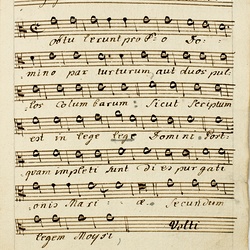 obtulerunt pro e o Do-
mino par turturum aut duos pul-
los Columbarum. Sicut Scriptum
est in lege lege Domini. Post-
quam impleti sunt dies purgati
onis Mari æ. Secundum
legem Moysi Volti